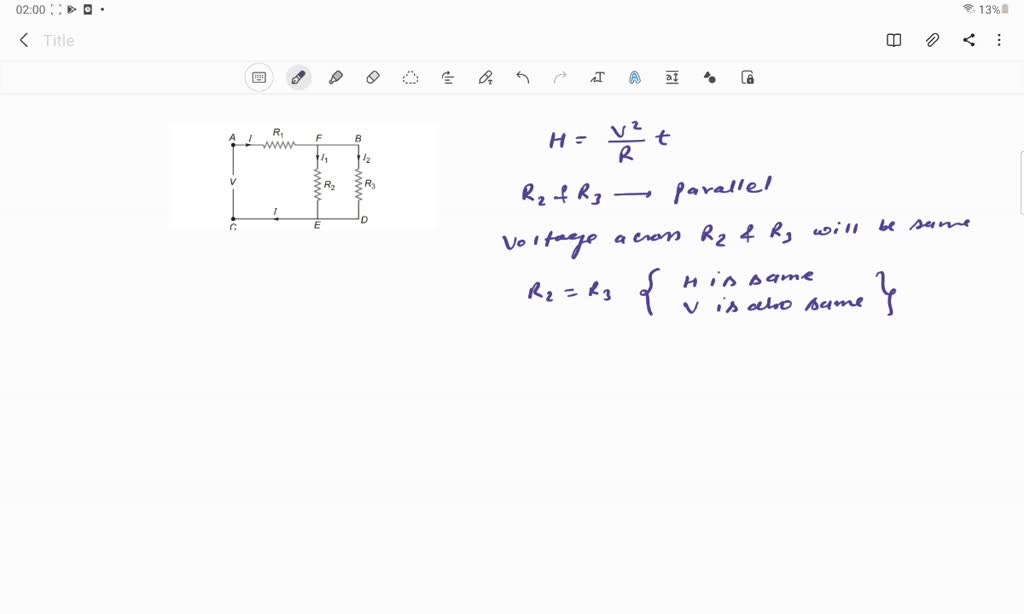 02:00
13%
Title
A I R1 F B
I1 I2
V R2 R3
I
C E D
H = V²/R t
R2 & R3 → parallel
Voltage across R2 & R3 will be same
R2 = R3 { H is same
V is also same }